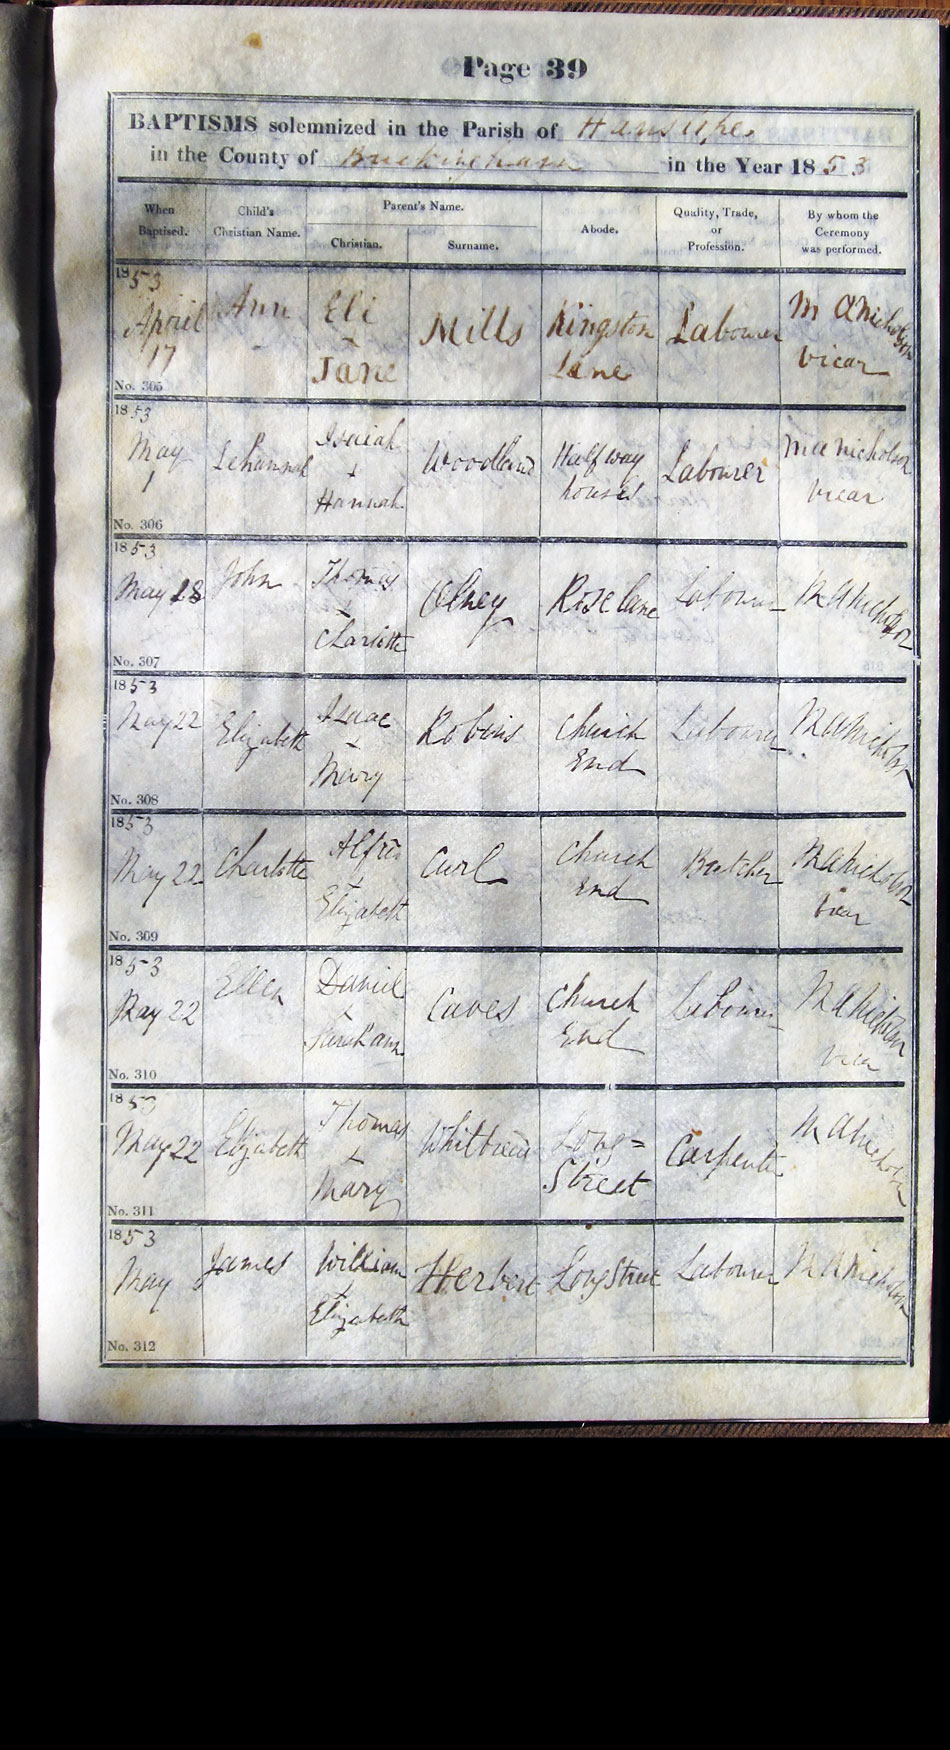 Page 39
BAPTISMS solemnized in the Parish of Hanslope
in the County of Buckingham in the Year 1853
When Baptised. Child's Christian Name. Parent's Name. Christian. Surname. Abode. Quality, Trade, or Profession. By whom the Ceremony was performed.
1853
April 17 Ann Eli + Jane Mills Kingston Lane Labourer M A Nicholson Vicar
No. 305
1853
May 1 Isaiah + Hannah Woodland Half way houses Labourer M A Nicholson Vicar
No. 306
1853
May 18 John Thomas + Charlotte Olney Rose lane Labourer M A Nicholson
No. 307
1853
May 22 Elizabeth Isaac + Mary Robins Church End Labourer M A Nicholson
No. 308
1853
May 22 Charlotte Alfred + Elizabeth Curl Church End Butcher M A Nicholson Vicar
No. 309
1853
May 22 Ellen Daniel Sarah ann Caves Church End Labourer M A Nicholson Vicar
No. 310
1853
May 22 Elizabeth Thomas + Mary Whitbread Long = Street Carpenter M A Nicholson
No. 311
1853
May James William + Elizabeth Herbert Long Street Labourer M A Nicholson
No. 312